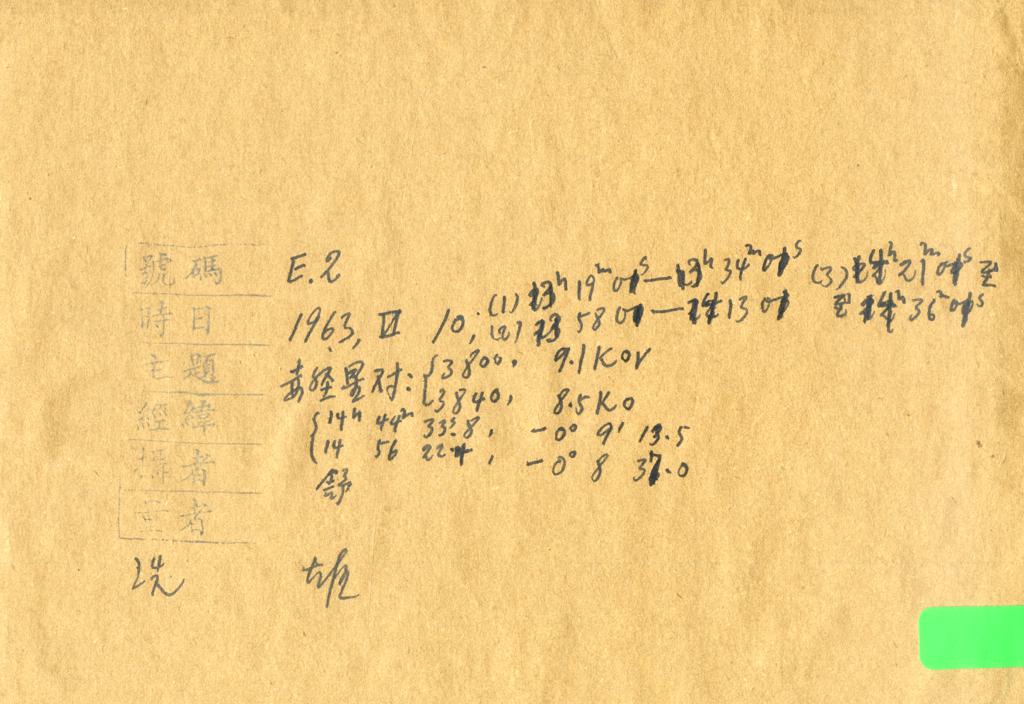 號碼 E.2
時日 1963, VI 10; (1) 13h 19m 01s — 13h 34m 01s (3) 14h 21m 01s 至
(2) 13 58 01 — 14 13 01 至 14h 36m 01s
主題 赤經星对: { 3800, 9.1 K0v
3840, 8.5 K0
經緯 { 14h 44m 33s.8, -0° 9' 13.5
14 56 22.4, -0° 8 37.0
攝者 舒
者
洗 雄